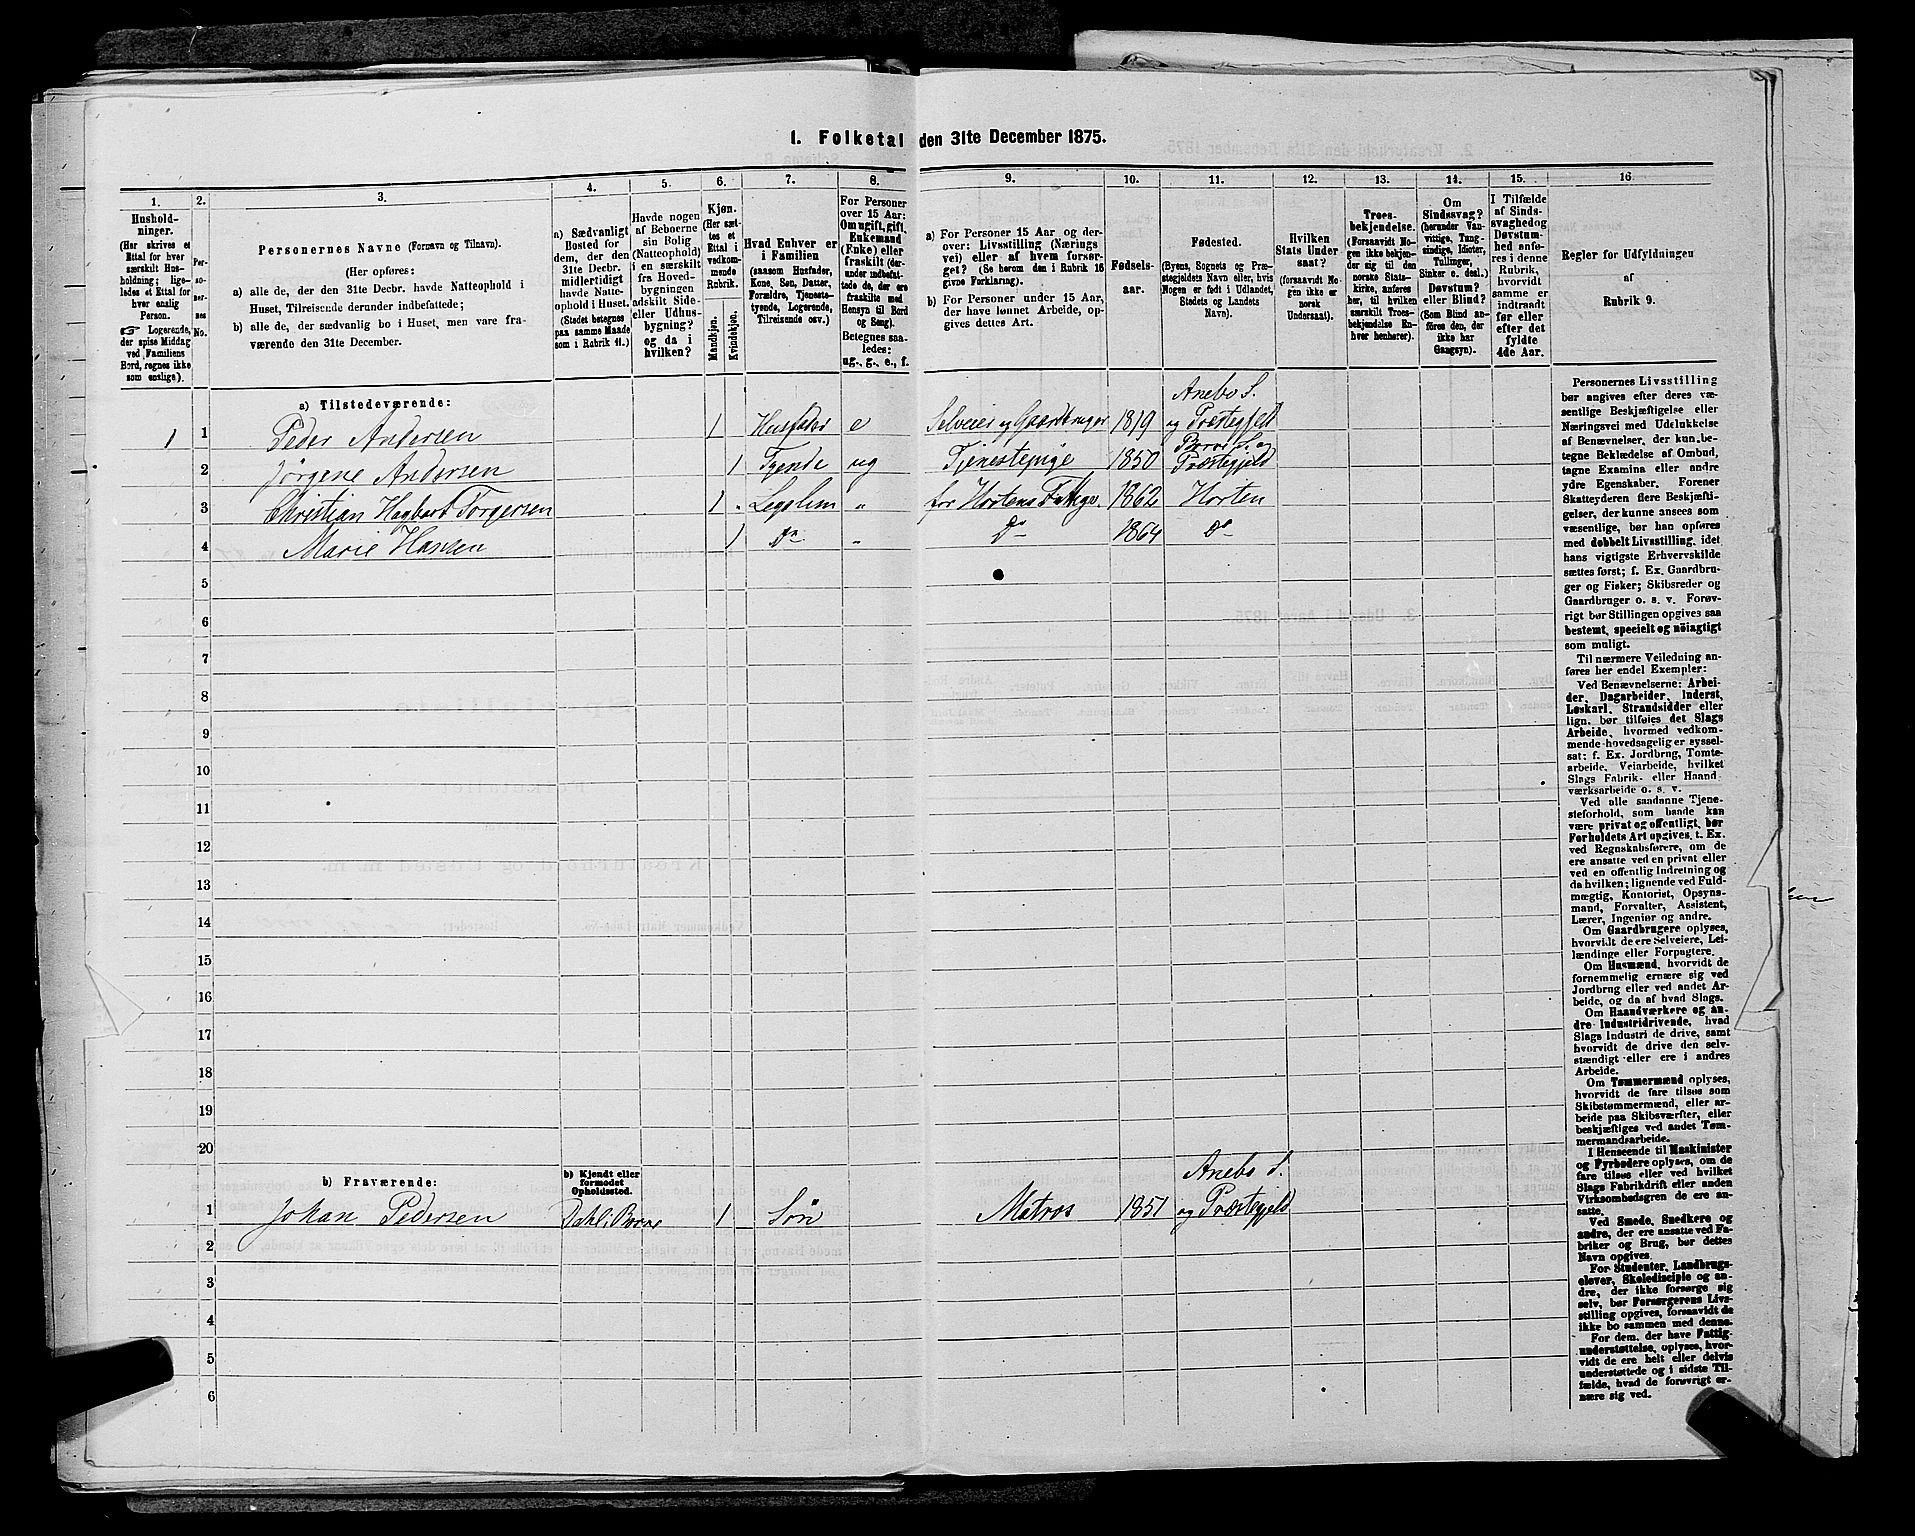 1. Folketal den 31te December 1875.
1.
Hushold-
ninger.
(Her skrives et
Ettal for hver
særskilt Hus-
holdning; lige-
ledes et Ettal for
hver enslig
Person.
☞ Logerende,
der spise Middag
ved Familiens
Bord, regnes ikke
som enslige).
2.
Per-
so-
ner-
nes
No.
3.
Personernes Navne (Fornavn og Tilnavn).
(Her opføres:
a) alle de, der den 31te Decbr. havde Natteophold i
Huset, Tilreisende derunder indbefattede;
b) alle de, der sædvanlig bo i Huset, men vare fra-
værende den 31te December.
4.
a) Sædvanligt
Bosted for
dem, der den
31te Decbr.
midlertidigt
havde Natte-
ophold i Huset.
(Stedet betegnes
paa samme Maade
som i Rubrik 11.)
5.
Havde nogen
af Beboerne
sin Bolig
(Natteophold)
i en særskilt
fra Hoved-
bygningen
adskilt Side-
eller Udhus-
bygning?
og da i
hvilken?
6.
Kjøn.
(Her sæt-
tes et
Ettal i
vedkom-
mende
Rubrik.
Mandkjøn.
Kvindekjøn.
7.
Hvad Enhver er
i Familien
(saasom Husfader,
Kone, Søn, Datter,
Forældre, Tjeneste-
tyende, Logerende,
Tilreisende osv.)
8.
For Personer
over 15 Aar:
Om ugift, gift,
Enkemand
(Enke) eller
fraskilt (der-
under indbefat-
tede de, der ere
fraskilte med
Hensyn til Bord
og Seng).
Betegnes saa-
ledes:
ug., g., e., f.
9.
a) For Personer 15 Aar og der-
over: Livsstilling (Nærings
vei) eller af hvem forsør-
get? (Se herom den i Rubrik 16
givne Forklaring).
b) For Personer under 15 Aar,
der have lønnet Arbeide, op-
gives dettes Art.
10.
Fødsels-
aar.
11.
Fødested.
(Byens, Sognets og Præ-
stegjeldets Navn eller, hvis
Nogen er født i Udlandet,
Stedets og Landets
Navn).
12.
Hvilken
Stats Under
saat?
(forsaavidt No-
gen ikke er
norsk
Undersaat).
13.
Troes-
bekjendelse.
(Forsaavidt No-
gen ikke bekjen-
der sig til den
norske Stats-
kirke, anføres
her, til hvilken
særskilt Troes-
bekjendelse En-
hver henhører).
14.
Om
Sindssvag?
(herunder Van-
vittige, Tung-
sindige, Idioter,
Tullinger,
Sinker o. desl.)
Døvstum?
eller Blind?
(Som Blind an-
føres den, der
ikke har
Gangsyn).
15.
I Tilfælde
af Sinds-
svaghed og
Døvstum-
hed anfø-
res i denne
Rubrik,
hvorvidt
samme er
indtraadt
før eller
efter det
fyldte
4de Aar.
16
Regler for Udfyldningen
af
Rubrik 9.
a) Tilstedeværende:
1 1 Peder Andersen 1 Husfader e Selveier og Gaardbruger 1819 Anebo S. og Præstegjeld
2 Jørgene Andersen 1 Tyende ug Tjenestepige 1850 Borre S. og Præstegjeld
3 Christian Hagbart Torgersen 1 " Legslem " for Hortens Fattige. 1862 Horten
4 Marie Hansen 1 Do " Do 1864 Do
5
6
7
8
9
10
11
12
13
14
15
16
17
18
19
20
b) Fraværende:
b) Kjendt eller
formodet
Opholdssted.
1 Johan Pedersen Dahl i Borre 1 Søn Matros 1851 Anebo S. og Præstegjeld
2
3
4
5
6
Personernes Livsstilling
bør angives efter deres væ-
sentlige Beskjæftigelse eller
Næringsvei med Udelukkelse
af Benævnelser, der kun be-
tegne Beklædelse af Ombud,
tagne Examina eller andre
ydre Egenskaber. Forener
Skatteyderen flere Beskjæfti-
gelser, der kunne ansees som
væsentlige, bør han opføres
med dobbelt Livsstilling, idet
hans vigtigste Erhvervskilde
sættes først; f. Ex. Gaardbru-
ger og Fisker; Skibsreder og
Gaardbruger o. s. v. Forøv-
rigt bør Stillingen opgives saa
bestemt, specielt og nøiagtigt
som muligt.
Til nærmere Veiledning an-
føres her endel Exempler:
Ved Benævnelserne: Arbei-
der, Dagarbeider, Inderst,
Løskarl, Strandsidder eller
lign. bør tilføies det Slags
Arbeide, hvormed vedkom-
mende hovedsagelig er syssel-
sat; f. Ex. Jordbrug, Tomte-
arbeide, Veiarbeide, hvilket
Slags Fabrik- eller Haand
værksarbeide o. s. v.
Ved alle saadanne Tjene-
steforhold, som baade kan
være privat og offentligt, bør
Forholdets Art opgives, t. Ex.
ved Regnskabsførere, om de
ere ansatte ved en privat eller
ved en offentlig Indretning og
da hvilken; lignende ved Fuld-
mægtig, Kontorist, Opsyns-
mand, Forvalter, Assistent,
Lærer, Ingeniør og andre.
Om Gaardbrugere oplyses,
hvorvidt de ere Selveiere, Lei-
lændinge eller Forpagtere.
Om Husmænd, hvorvidt de
fornemmelig ernære sig ved
Jordbrug eller ved andet Ar-
beide, og da af hvad Slags.
Om Haandværkere og an-
dre Industridrivende, hvad
Slags Industri de drive, samt
hvorvidt de drive den selv-
stændigt eller ere i andres
Arbeide.
Om Tømmermænd oplyses,
hvorvidt de fare tilsøs som
Skibstømmermænd, eller ar-
beide paa Skibsværfter, eller
beskjæftiges ved andet Tøm-
mermandsarbeide.
I Henseende til Maskinister
og Fyrbødere oplyses, om de
fare tilsøs eller ved hvilket
Slags Fabrikdrift eller anden
Virksomhedsgren de ere an-
satte.
Ved Smede, Snedkere og
andre, der ere ansatte ved Fa-
briker og Brug, bør dettes
Navn opgives.
For Studenter, Landbrugs-
elever, Skoledisciple og an-
dre, der ikke forsørge sig
selv, bør Forsørgerens Livs-
stilling opgives, forsaavidt de
ikke bo sammen med denne.
For dem, der have Fattig-
understøttelse, oplyses, hvor-
vidt de ere helt eller delvis
understøttede og i sidste Til-
fælde, hvad de forøvrigt er-
nære sig ved.